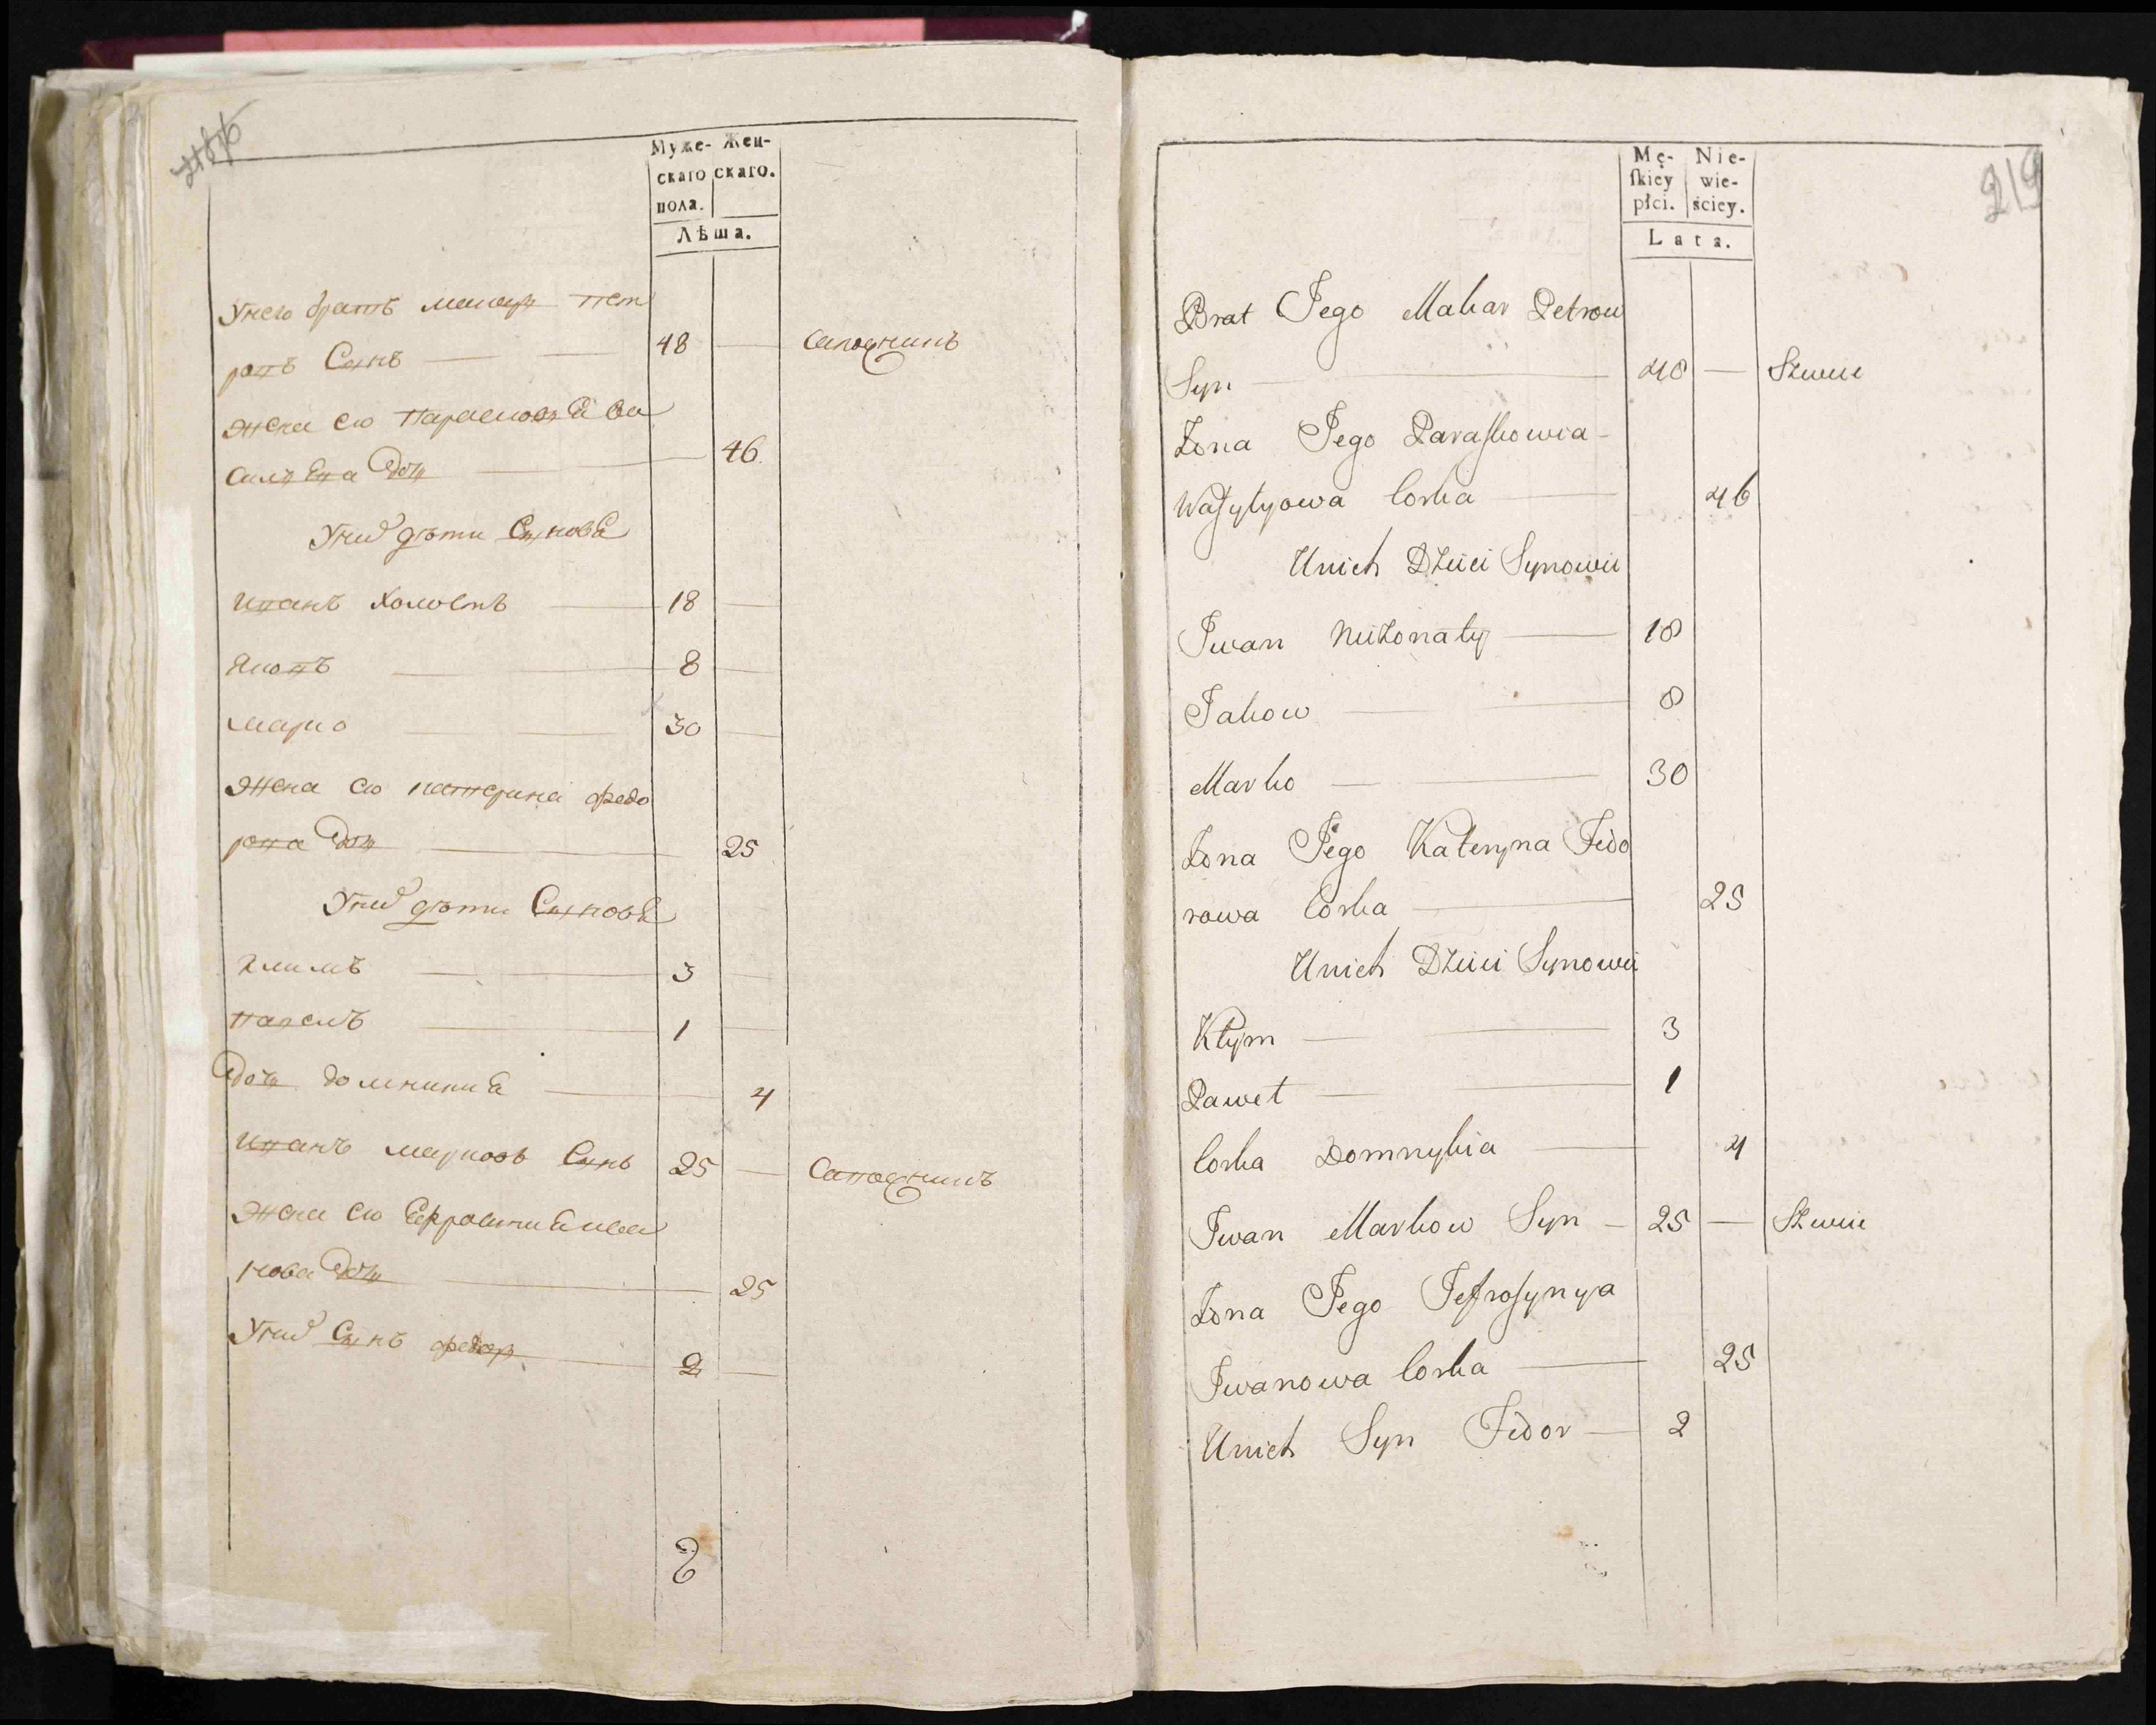 Муже- Жен-
скаго скаго.
пола.
Лѣта.
Унего братъ макаръ пет
ровъ Сынъ 48 сапожникъ
жена его Парасковѣя ва
силѣва дочь 46
Уних дѣти Сыновя
иванъ холостъ 18
яковъ 8
марко 30
жена его катерина федо
рова дочь 25
Уних дѣти Сыновя
климъ 3
павелъ 1
дочь домникия 4
иванъ марковъ Сынъ 25 Сапожникъ
жена его Ефросиния ива
нова дочь 25
Уних Сынъ федоръ 2
219
Mę- Nie-
skiey wie-
płci. ściey.
Lata.
Brat Jego Makar Petrow
Syn 48 Szwiec
Żona Jego Paraskowia
Wasylyowa Corka 46
Unich Dzieci Synowie
Jwan Nieżonaty 18
Jakow 8
Marko 30
Żona Jego Kateryna Fedo
rowa Corka 25
Unich Dzieci Synowie
Kłym 3
Paweł 1
Corka Domnykia 4
Jwan Markow Syn 25 Szwiec
Żona Jego Jefrosynya
Jwanowa Corka 25
Unich Syn Fedor 2